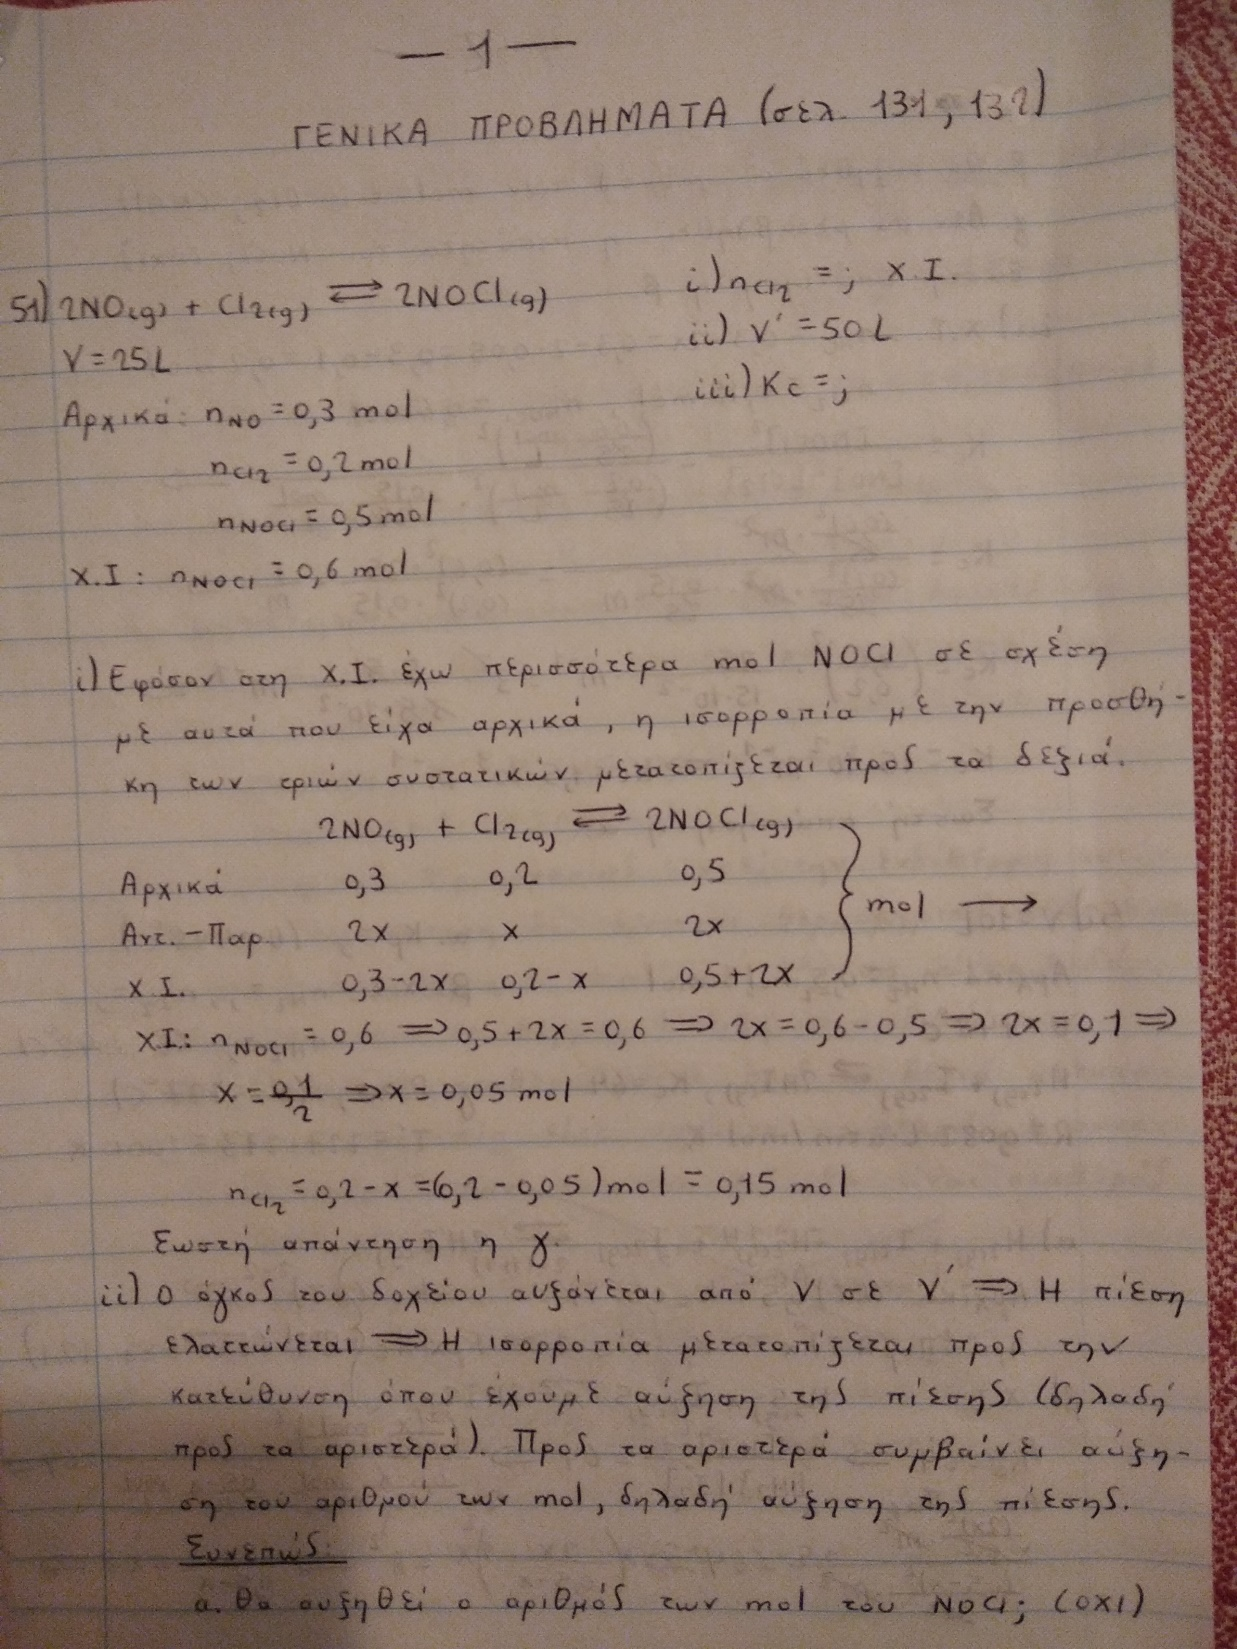 — 1 —
ΓΕΝΙΚΑ ΠΡΟΒΛΗΜΑΤΑ (σελ. 131, 132)
51) 2NO(g) + Cl2(g) ⇌ 2NOCl(g)
i) nCl2 =; X.I.
V = 25L
ii) V' = 50L
Αρχικά: nNO = 0,3 mol
iii) Kc =;
nCl2 = 0,2 mol
nNOCl = 0,5 mol
X.I: nNOCl = 0,6 mol
i) Εφόσον στη X.I. έχω περισσότερα mol NOCl σε σχέση
με αυτά που είχα αρχικά, η ισορροπία με την προσθή-
κη των τριών συστατικών μετατοπίζεται προς τα δεξιά.
2NO(g) + Cl2(g) ⇌ 2NOCl(g)
Αρχικά 0,3 0,2 0,5
Αντ.-Παρ. 2x x 2x
mol →
X.I. 0,3-2x 0,2-x 0,5+2x
X.I: nNOCl = 0,6 ⇒ 0,5+2x = 0,6 ⇒ 2x = 0,6-0,5 ⇒ 2x = 0,1 ⇒
x = 0,1/2 ⇒ x = 0,05 mol
nCl2 = 0,2-x = (0,2-0,05) mol = 0,15 mol
Σωστή απάντηση η γ.
ii) Ο όγκος του δοχείου αυξάνεται από V σε V' ⇒ Η πίεση
ελαττώνεται ⇒ Η ισορροπία μετατοπίζεται προς την
κατεύθυνση όπου έχουμε αύξηση της πίεσης (δηλαδή
προς τα αριστερά). Προς τα αριστερά συμβαίνει αύξη-
ση του αριθμού των mol, δηλαδή αύξηση της πίεσης.
Συνεπώς:
α. θα αυξηθεί ο αριθμός των mol του NOCl; (ΟΧΙ)